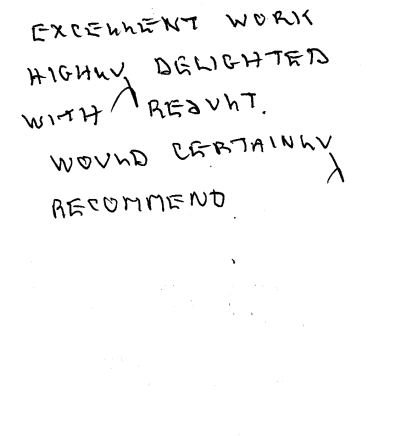 EXCELLENT WORK
HIGHLY DELIGHTED
WITH RESULT.
WOULD CERTAINLY
RECOMMEND